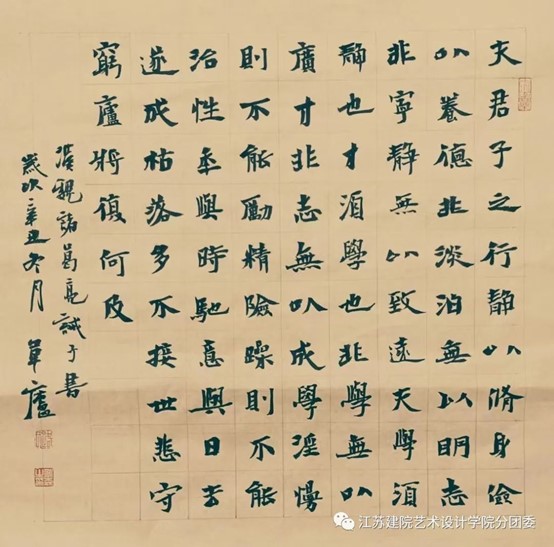 夫君子之行靜以脩身儉
以養德非淡泊無以明志
非寧靜無以致遠夫學須
靜也才須學也非學無以
廣才非志無以成學淫慢
則不能勵精險躁則不能
治性年與時馳意與日去
遂成枯落多不接世悲守
窮廬將復何及
諸葛亮誡子書
歲次辛丑冬月 廬
江苏建院艺术设计学院分团委